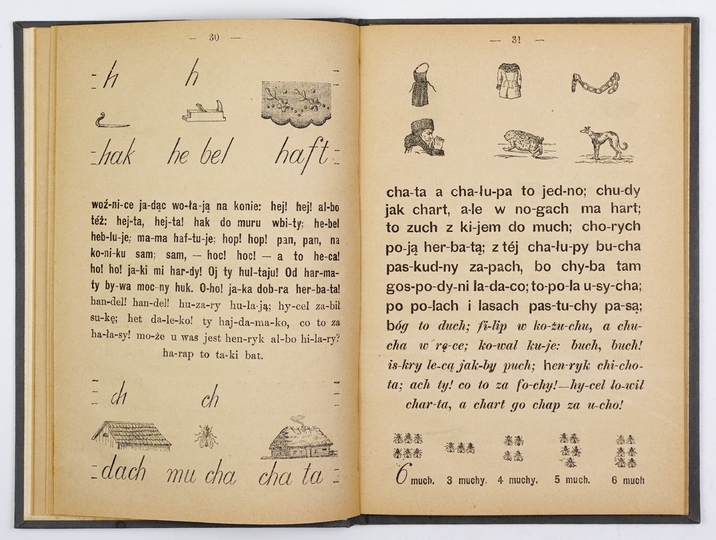 — 30 —
h h
hak he bel haft
woź-ni-ce ja-dąc wo-ła-ją na konie: hej! hej! al-bo
téż: hej-ta, hej-ta! hak do muru wbi-ty; he-bel
heb-lu-je; ma-ma haf-tu-je; hop! hop! pan, pan, na
ko-ni-ku sam; sam, — hoc! hoc! — a to he-ca!
ho! ho! ja-ki mi har-dy! Oj ty hul-taju! Od har-ma-
ty by-wa moc-ny huk. O-ho! ja-ka dob-ra her-ba-ta!
han-del! han-del! hu-za-ry hu-la-ją; hy-cel za-bił
su-kę; het da-le-ko! ty haj-da-ma-ko, co to za
ha-ła-sy! mo-że u was jest hen-ryk al-bo hi-la-ry?
ha-rap to ta-ki bat.
ch ch
dach mu cha cha ta
— 31 —
cha-ta a cha-łu-pa to jed-no; chu-dy
jak chart, a-le w no-gach ma hart;
to zuch z ki-jem do much; cho-rych
po-ją her-ba-tą; z téj cha-łu-py bu-cha
pas-kud-ny za-pach, bo chy-ba tam
gos-po-dy-ni la-da-co; to-po-la u-sy-cha;
po po-lach i lasach pas-tu-chy pa-są;
bóg to duch; fi-lip w ko-żu-chu, a chu-
cha w rę-ce; ko-wal ku-je: buch, buch!
is-kry le-cą jak-by puch; hen-ryk chi-cho-
ta; ach ty! co to za fo-chy!—hy-cel ło-wił
char-ta, a chart go chap za u-cho!
6 much. 3 muchy. 4 muchy. 5 much. 6 much